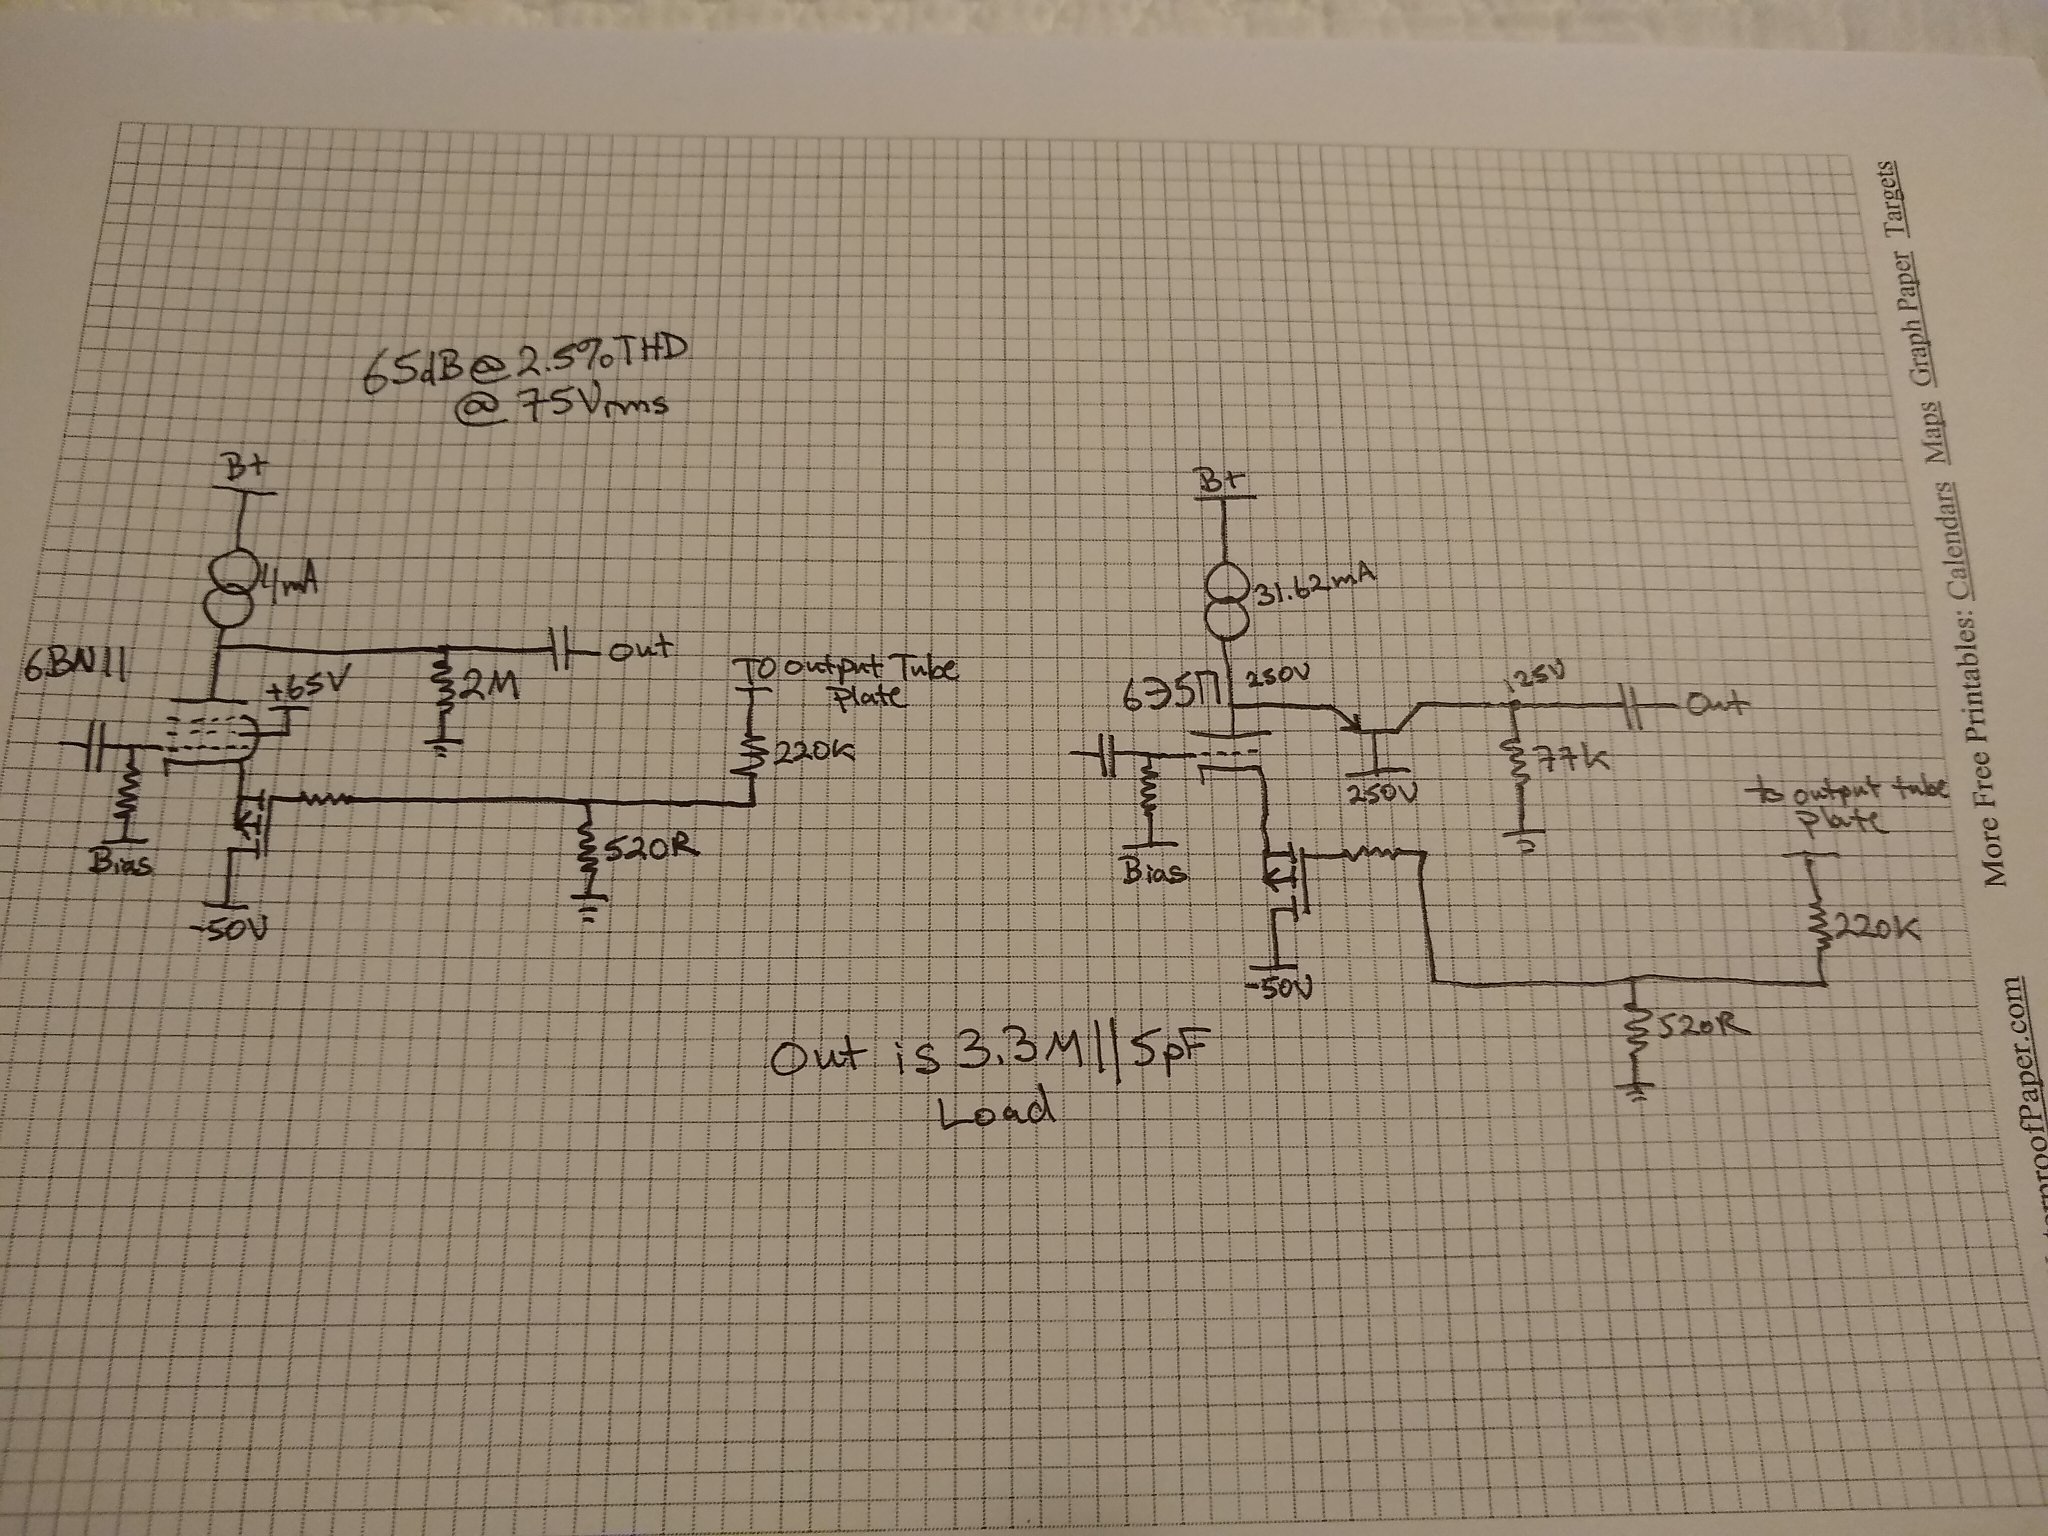 65dB @ 2.5% THD
@ 75Vrms
B+
4mA
6BN11
+65V
2M
Out
TO output Tube
Plate
220K
520R
Bias
-50V
B+
31.62mA
6Э5П
250V
250V
125V
77K
Out
to output tube
plate
220K
520R
Bias
-50V
Out is 3.3M||5pF
Load
More Free Printables: Calendars Maps Graph Paper Targets